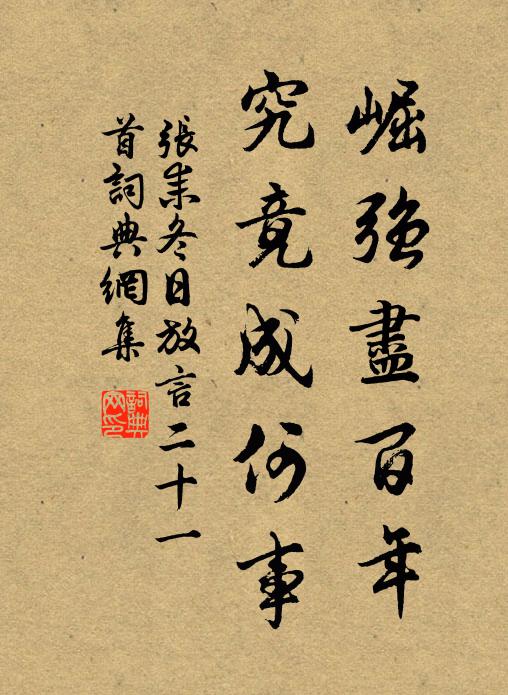 崛強盡百年
究竟成何事
張耒冬日放言二十一
首詞典網集
詞典
网印